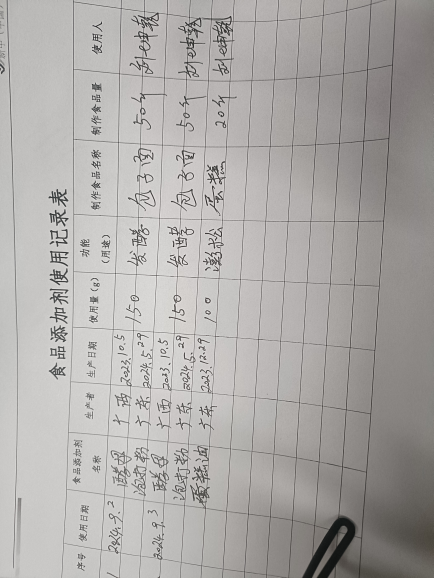 食品添加剂使用记录表
序号 使用日期 食品添加剂名称 生产者 生产日期 使用量(g) 功能(用途) 制作食品名称 制作食品量 使用人
1 2024.9.2 酵母 广西 2023.10.5 150 发酵 包子面 50斤
泡打粉 广东 2024.5.29
2024.9.3 酵母 广西 2023.10.5 150 发酵 包子面 50斤
泡打粉 广东 2024.5.29
蛋糕油 广东 2023.12.29 100 澎松 蛋糕 20斤